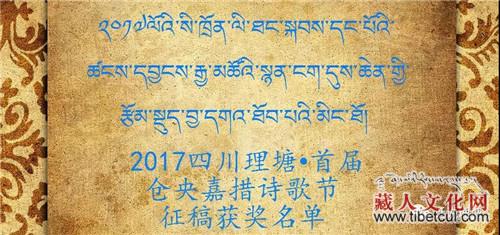 ༢༠༡༧ལོའི་སི་ཁྲོན་ལི་ཐང་སྐབས་དང་པོའི་
ཚངས་དབྱངས་རྒྱ་མཚོའི་སྙན་ངག་དུས་ཆེན་གྱི་
རྩོམ་སྡུད་བྱ་དགའ་ཐོབ་པའི་མིང་ཐོ།
2017四川理塘•首届
仓央嘉措诗歌节
征稿获奖名单
藏人文化网
www.tibetcul.com